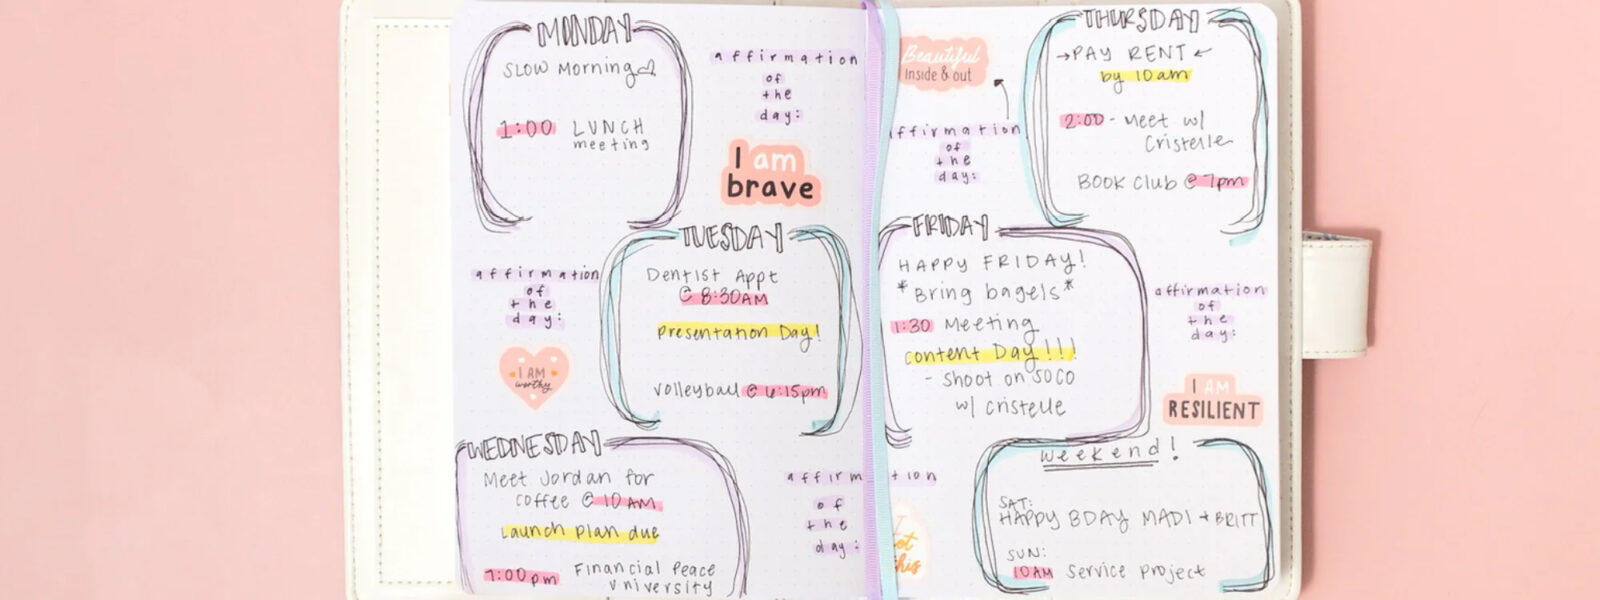 MONDAY
SLOW Morning
1:00 LUNCH
meeting
affirmation
of
the
day:
I am
brave
TUESDAY
Dentist Appt
@ 8:30AM
presentation Day!
volleyball @ 6:15pm
affirmation
of
the
day:
I AM
worthy
WEDNESDAY
Meet Jordan for
coffee @ 10AM
Launch plan due
7:00pm Financial Peace
University
affirmation
of
the
day:
Beautiful
Inside & out
affirmation
of
the
day:
THURSDAY
→PAY RENT←
by 10am
2:00 - Meet w/
Cristelle
BOOK Club @ 7pm
FRIDAY
HAPPY FRIDAY!
*Bring bagels*
1:30 Meeting
content Day!!!
- shoot on SOCO
w/ cristelle
affirmation
of
the
day:
I AM
RESILIENT
weekend!
SAT:
HAPPY BDAY MADI + BRITT
SUN:
10AM Service Project